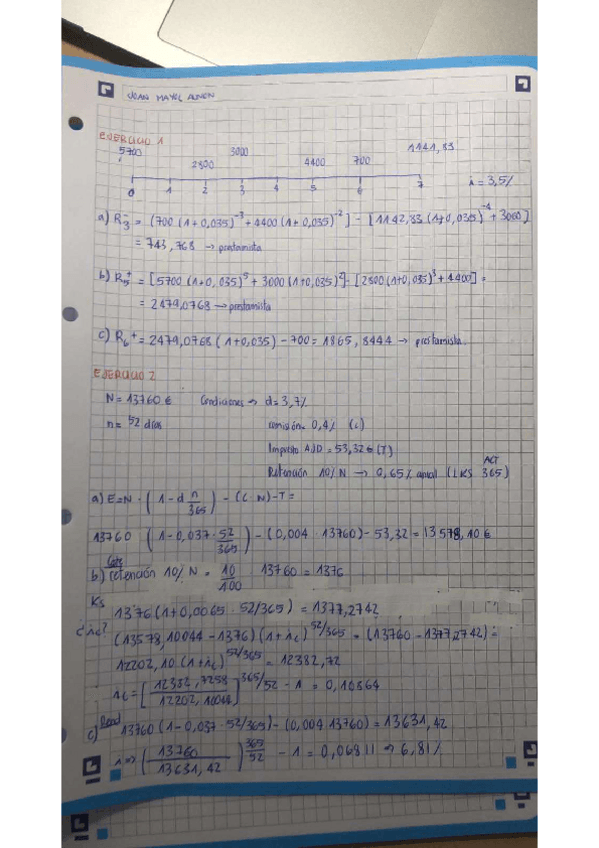 JOAN MAYOL
EJERCICIO 1
5700 2800 3000 4400 700 1141,83
0 1 2 3 4 5 6 7 i = 3,5%
a) R₃⁻ = [700 (1+0,035)⁻³ + 4400 (1+0,035)⁻²] - [1142,83 (1+0,035)⁻⁴ + 3000]
= 743,768 → prestamista
b) R₅⁺ = [5700 (1+0,035)⁵ + 3000 (1+0,035)²] - [2800 (1+0,035)³ + 4400] =
= 2479,0768 → prestamista
c) R₆⁺ = 2479,0768 (1+0,035) - 700 = 1865,8444 → prestamista.
EJERCICIO 2
N = 13760 € Condiciones → d = 3,7%
n = 52 días comisión = 0,4% (c)
Impuesto AJD = 53,32€ (T)
ACT
Retención 10% N → 0,65% anual (LKS 365)
a) E = N · (1 - d n/365) - (C · N) - T =
13760 (1 - 0,037 · 52/365) - (0,004 · 13760) - 53,32 = 13578,10 €
b) retención 10% N = 10/100 · 13760 = 1376
Ks
1376 (1+0,0065 · 52/365) = 1377,2742
(13578,10044 - 1376) (1+ic)^52/365 = (13760 - 1377,2742) =
12202,10 (1+ic)^52/365 = 12382,72
ic = [12382,7258/12202,10044]^365/52 - 1 = 0,10864
c) Rend 13760 (1 - 0,037 · 52/365) - (0,004 · 13760) = 13631,42
i ⇒ (13760/13631,42)^365/52 - 1 = 0,06811 → 6,81%